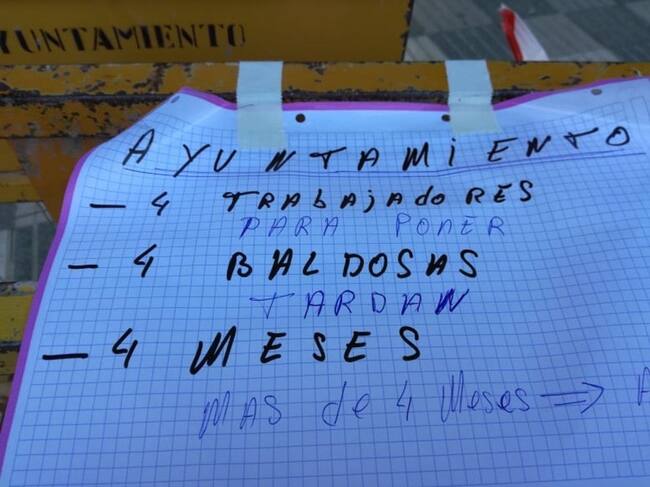 AYUNTAMIENTO
AYUNTAMIENTO
- 4 TRAbAjAdoRES
PARA PONER
- 4 BALDOSAS
TARDAN
- 4 MESES
MAS de 4 Meses => A